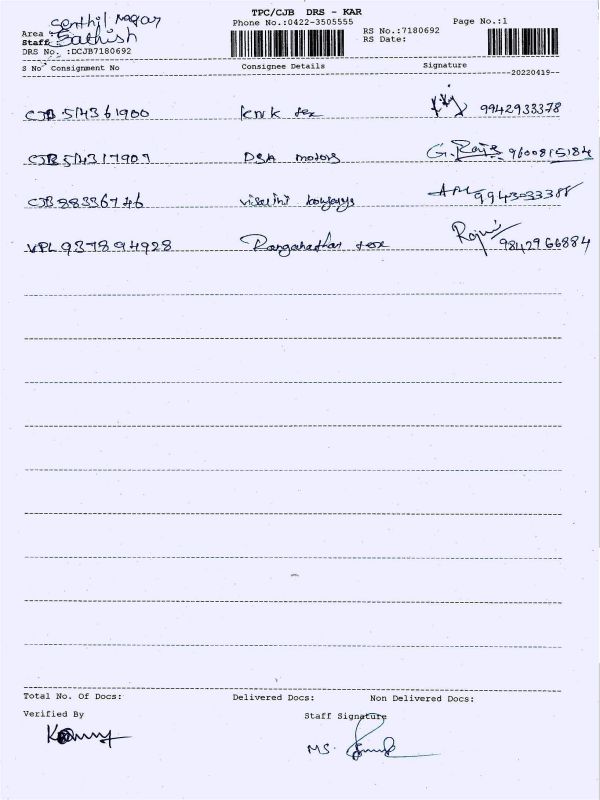 TPC/CJB DRS - KAR
Area Senthil Nagar Phone No.:0422-3505555 RS No.:7180692 Page No.:1
Staff Sathish RS Date:
DRS No. :DCJB7180692
S No Consignment No Consignee Details Signature
20220419
CJB 514361900 knk tex 9942933378
CJB 514317907 DSA motors G. Raj 9600815184
CJB 88336746 9943033388
VPL 937894928 tex 9842966884
Total No. Of Docs: Delivered Docs: Non Delivered Docs:
Verified By Staff Signature
MS.